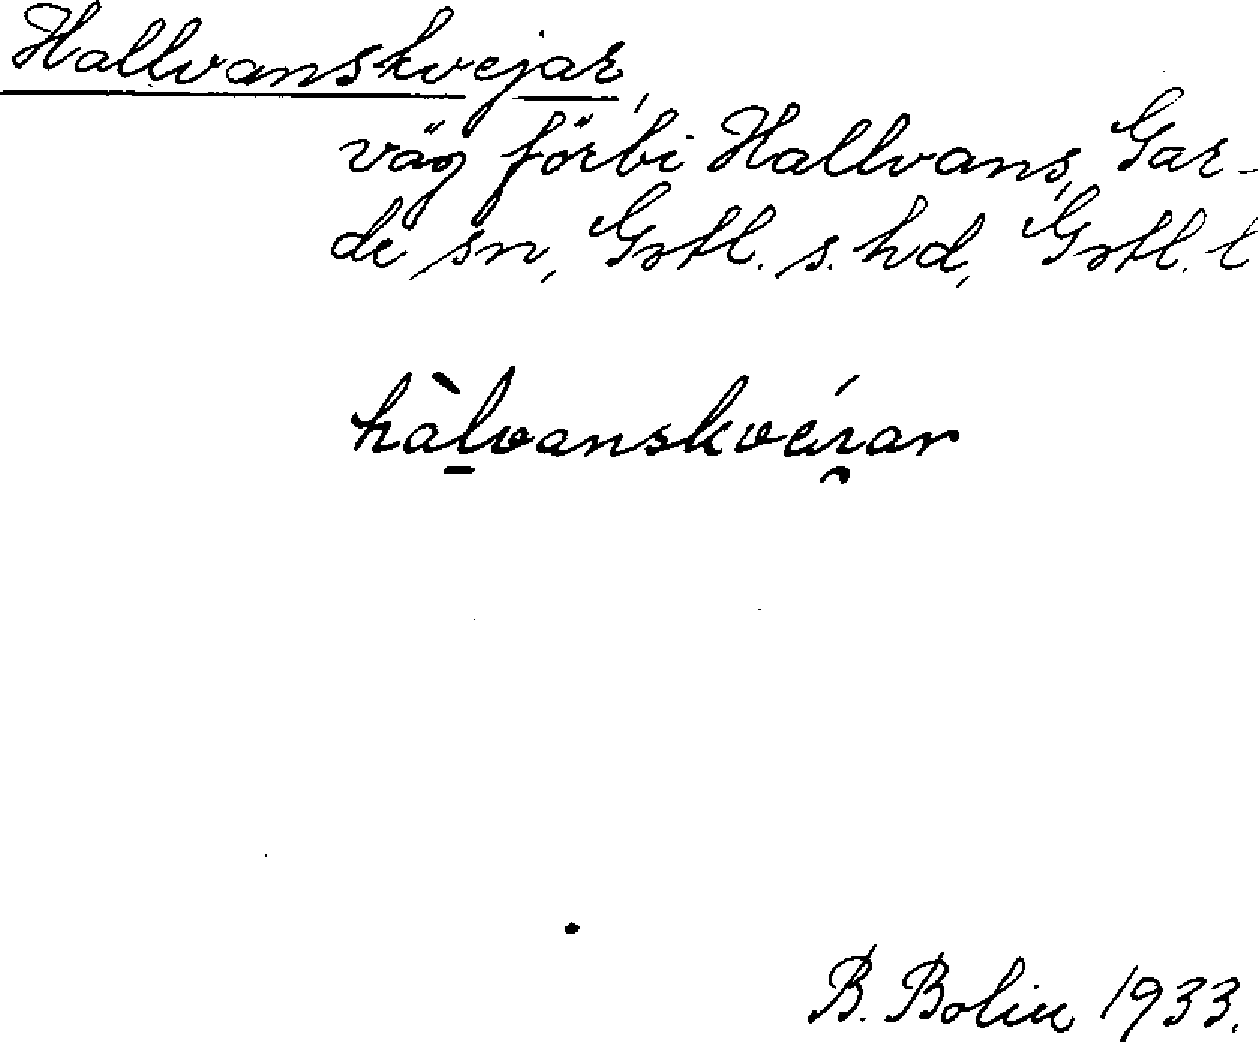 Hallvanskvejar,
väg förbi Hallvans, Gar-
de sn, Gotl. s. hd, Gotl. l
hàlvanskvéı̯ar
B. Bolin 1933.